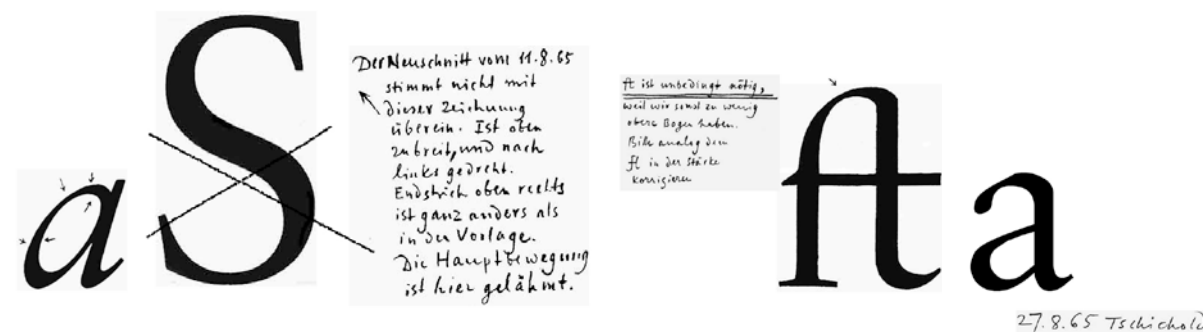 a
S
Der Neuschnitt vom 11.8.65
stimmt nicht mit
dieser Zeichnung
überein. Ist oben
zu breit, und nach
links gedreht.
Endstrich oben rechts
ist ganz anders als
in der Vorlage.
Die Hauptbewegung
ist hier gelähmt.
ft ist unbedingt nötig,
weil wir sonst zu wenig
obere Bogen haben.
Bitte analog dem
fl in der Stärke
korrigieren
ft
a
27.8.65 Tschichold